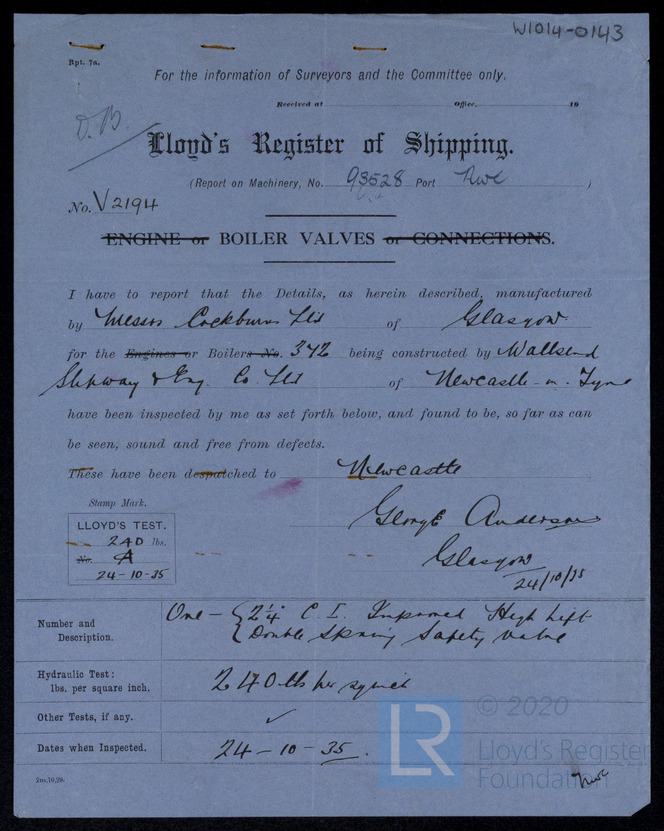 W1014-0143
Rpt. 7a.
For the information of Surveyors and the Committee only.
Received at Office. 19
D.B.
Lloyd's Register of Shipping.
(Report on Machinery, No. 93528 Port Nwc )
No. V2194
ENGINE or BOILER VALVES or CONNECTIONS.
I have to report that the Details, as herein described, manufactured
by Messrs Cockburns Ltd of Glasgow
for the Engines or Boilers No. 342 being constructed by Wallsend
Slipway & Eng. Co. Ltd of Newcastle-on-Tyne
have been inspected by me as set forth below, and found to be, so far as can
be seen, sound and free from defects.
These have been despatched to Newcastle
Stamp Mark.
George Anderson
LLOYD'S TEST.
240 lbs.
No. A
24-10-35
Glasgow
24/10/35
Number and Description. One - { 2¼" C.I. Improved High Lift
Double Spring Safety Valve
Hydraulic Test:
lbs. per square inch. 240 lbs per sq inch
Other Tests, if any. ✓
Dates when Inspected. 24-10-35.
LR © 2020
Lloyd's Register
Foundation
Nwc
2m,10,28.